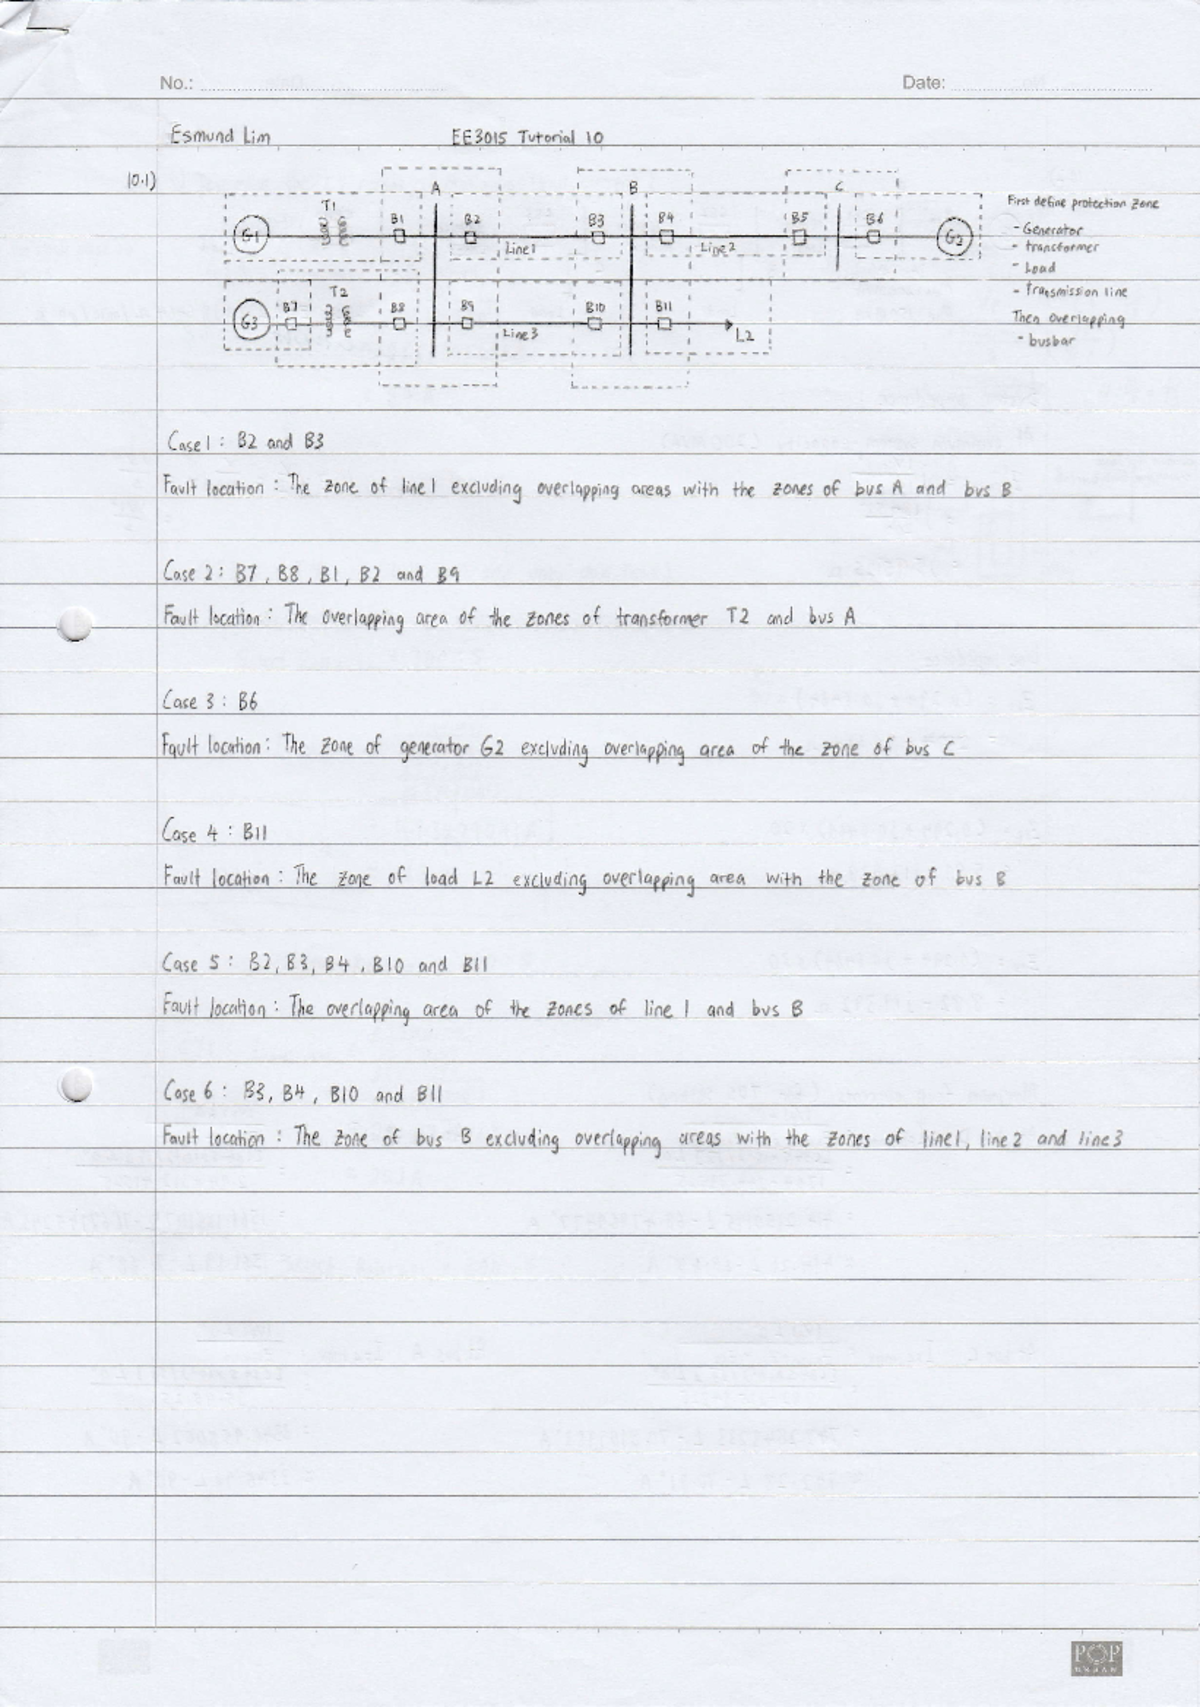 No.: Date:
Esmund Lim EE3015 Tutorial 10
10.1)
A B C
T1 B1 B2 B3 B4 B5 B6
G1 Line1 Line2 G2
T2 B7 B8 B9 B10 B11
G3 Line3 L2
First define protection zone
- Generator
- transformer
- Load
- transmission line
Then overlapping
- busbar
Case 1 : B2 and B3
Fault location : The zone of line 1 excluding overlapping areas with the zones of bus A and bus B
Case 2 : B7, B8, B1, B2 and B9
Fault location : The overlapping area of the zones of transformer T2 and bus A
Case 3 : B6
Fault location : The zone of generator G2 excluding overlapping area of the zone of bus C
Case 4 : B11
Fault location : The zone of load L2 excluding overlapping area with the zone of bus B
Case 5 : B2, B3, B4, B10 and B11
Fault location : The overlapping area of the zones of line 1 and bus B
Case 6 : B3, B4, B10 and B11
Fault location : The zone of bus B excluding overlapping areas with the zones of line1, line 2 and line 3
POP